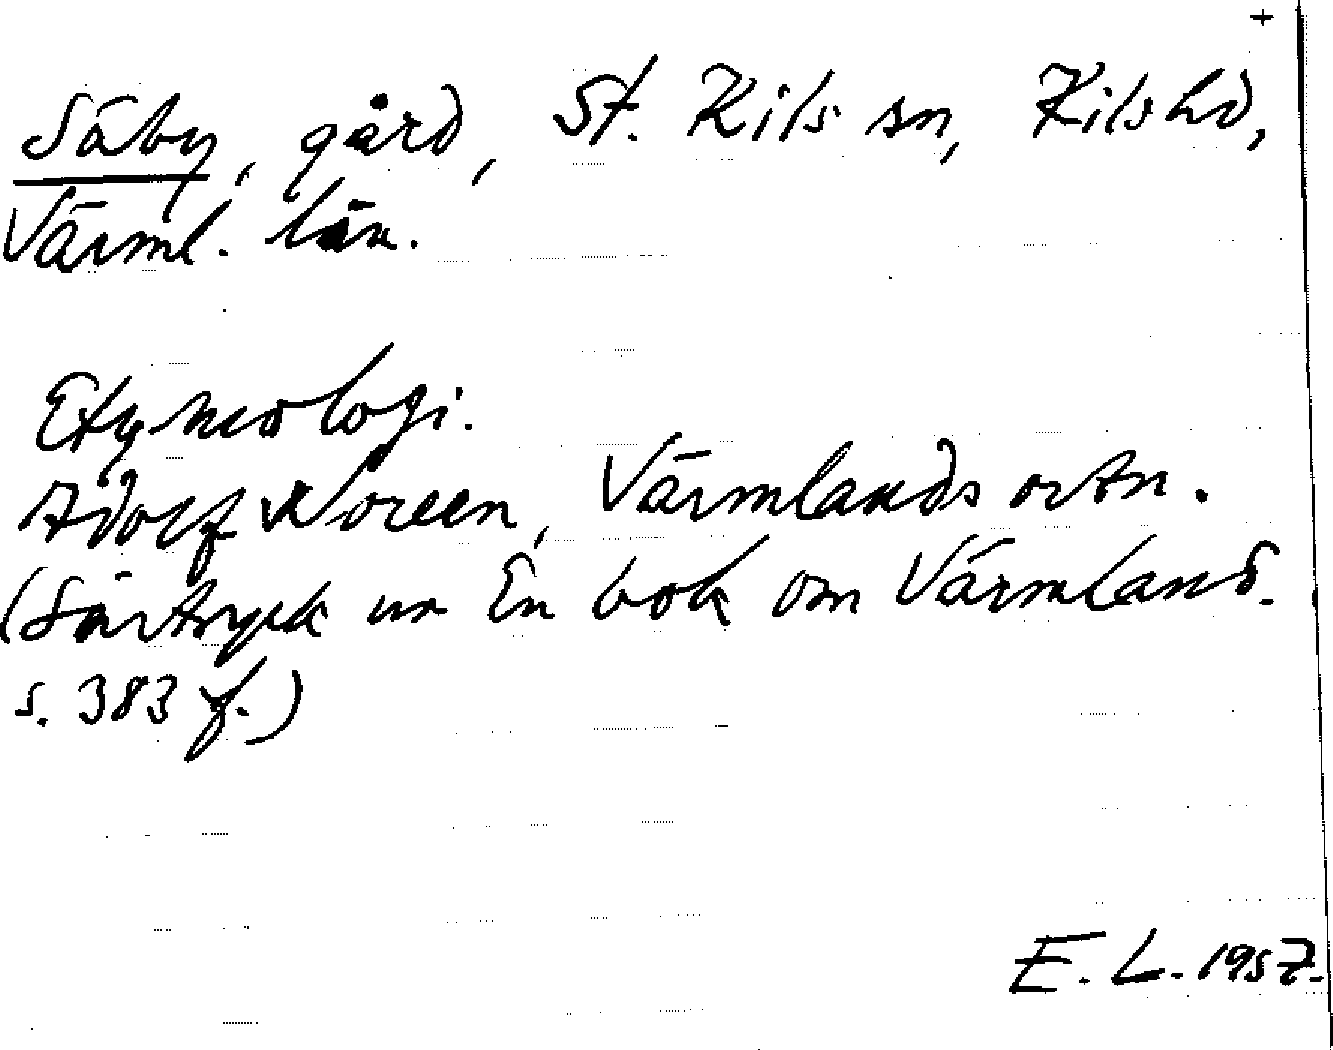 +
Säby, gård, St. Kils sn, Kils hd,
Värml. län.
Etymologi.
Adolf Noreen, Värmlands ortn.
(Särtryck ur En bok om Värmland.
s. 383 f.)
E. L. 1957.